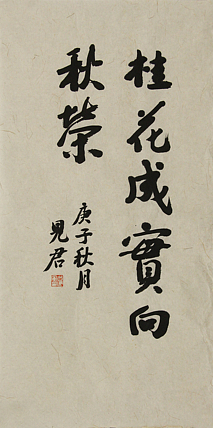 桂花成實向
秋榮
庚子秋月
見君